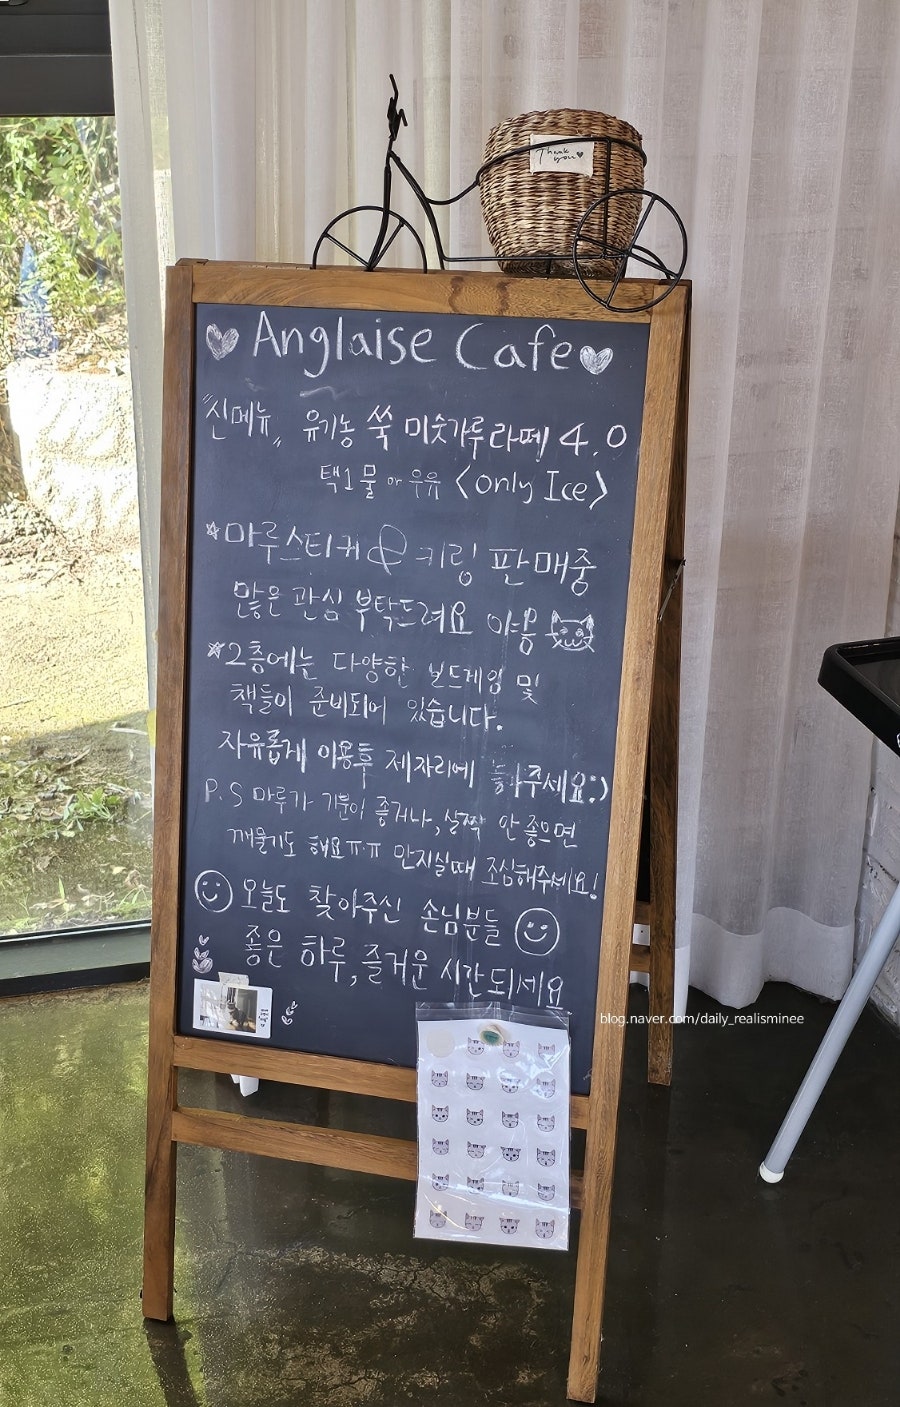 Thank you♥
♥Anglaise Cafe♥
"신메뉴" 유기농 쑥 미숫가루라떼 4.0
택1 물 or 우유 <only Ice>
☆마루스티커 & 키링 판매중
많은 관심 부탁드려요 야옹
☆2층에는 다양한 보드게임 및
책들이 준비되어 있습니다.
자유롭게 이용후 제자리에 놔주세요:)
P.S 마루가 기분이 좋거나, 살짝 안좋으면
깨물기도 해요ㅠ.ㅠ 만지실때 조심해주세요!
오늘도 찾아주신 손님분들
좋은 하루, 즐거운 시간되세요
blog.naver.com/daily_realisminee